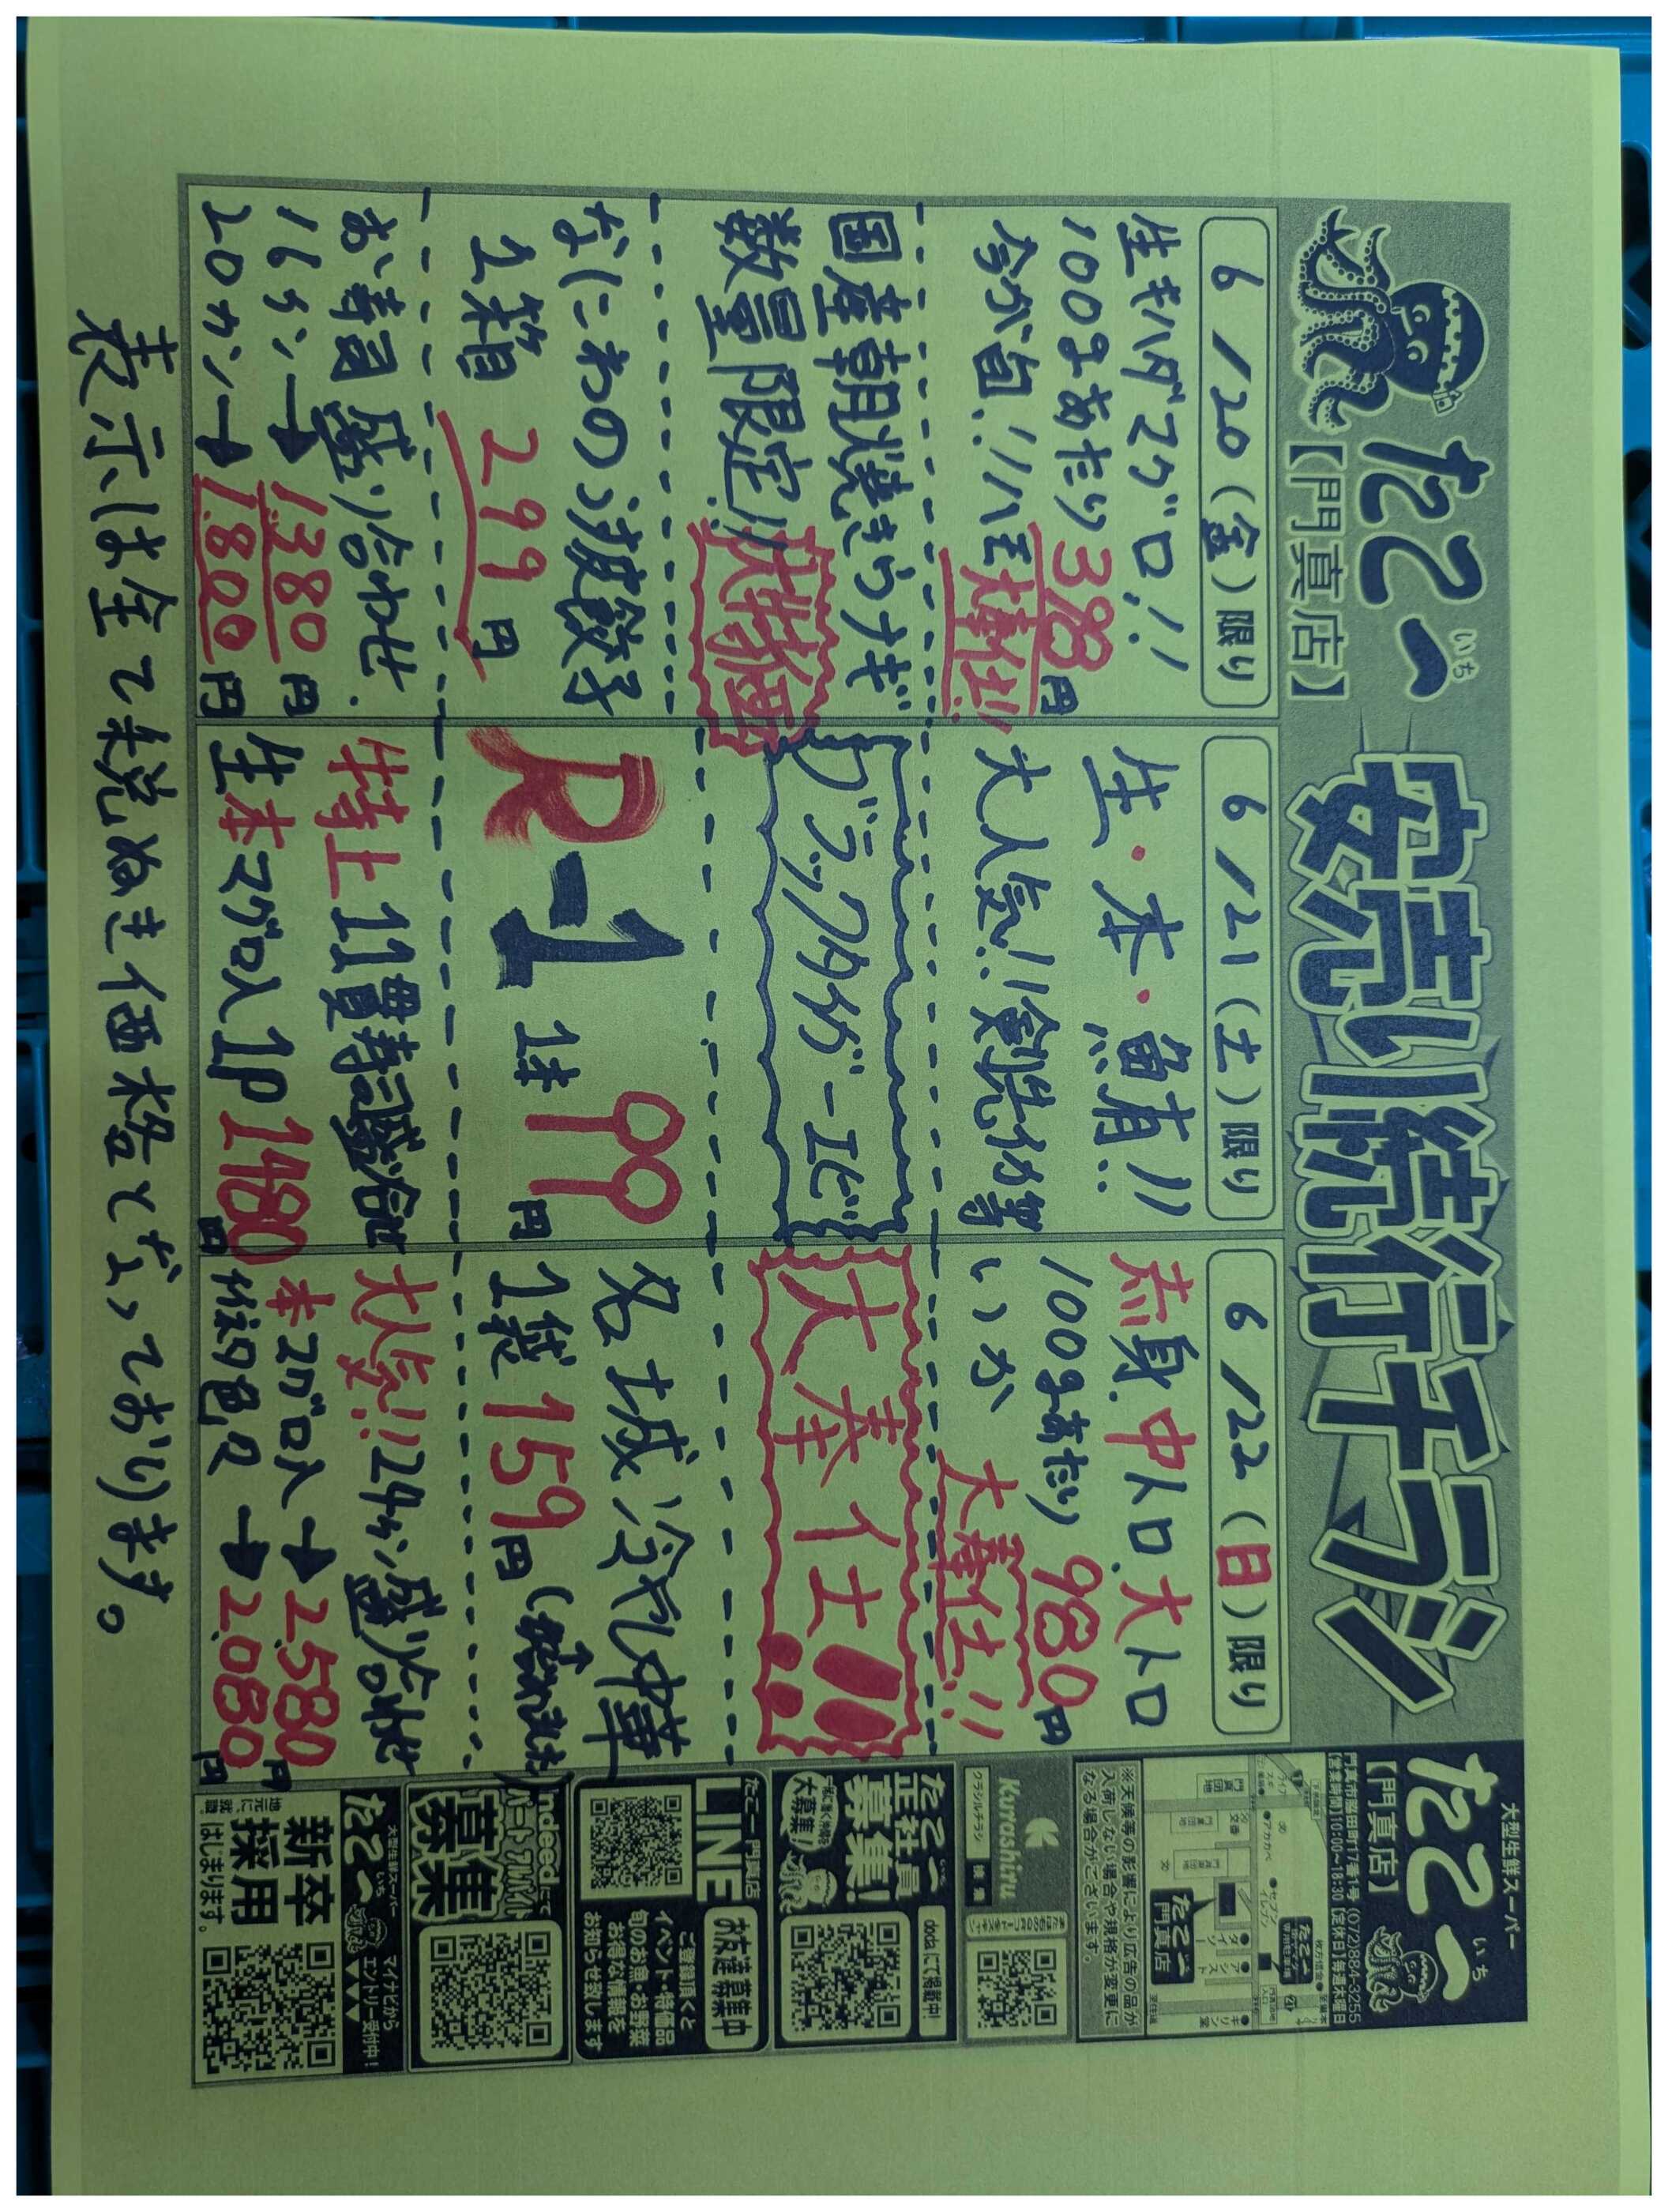 たこ一
いち
【門真店】
安売り続行チラシ
6/20(金)限り
生キハダマグロ!!
100gあたり398円
今が旬!!ハモ大奉仕!!
国産朝焼きうナギ
数量限定!!大特価
なにわのポン酢餃子
1箱 299円
お寿司盛り合わせ.
16カン→1.380円
20カン→1.800円
6/21(土)限り
生・本・鮪!!
大人気!!食べ比べ等
ブラックタイガーエビ
R-1 1本99円
特上11貫寿司盛合せ
生本マグロ入1P1480円
6/22(日)限り
赤身.中トロ.大トロ
100gあたり980円
いか 大奉仕!!
大奉仕!!
名城冷し中華
1袋159円
大人気!!24カン盛り合わせ
本マグロ入→2.580円
般句色々→2.080円
表示は全て税ぬき価格となっております。
大型生鮮スーパー
たこ一
いち
【門真店】
門真市脇田町17番1号 (072)884-3255
【営業時間】10:00~18:30【定休日】毎週木曜日
たこ一
門真店
※天候等の影響により広告の品が
入荷しない場合や規格が変更に
なる場合がございます。
Kurashiru
クラシルチラシ 検索
たこ一
正社員
募集!
一緒に働く仲間を
大募集!
dodaにて掲載中!
たこ一 門真店
LINE
お友達募集中
ご登録頂くと
イベント・特価品
旬のお魚・お野菜
お得な情報を
お知らせ致します
indeedにて
パート・アルバイト
募集
大型生鮮スーパー
たこ一
いち
マイナビから
エントリー受付中!
地元に就職
新卒
採用
はじまります。